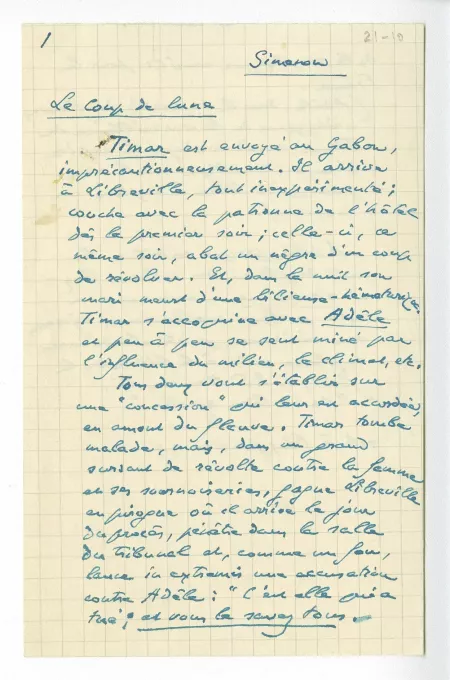 1
21-10
Simenon
Le Coup de lune
Timar est envoyé au Gabon,
imprécautionneusement. Il arrive
à Libreville, tout inexpérimenté ;
couche avec la patronne de l'hôtel
dès le premier soir ; celle-ci, ce
même soir, abat un nègre d'un coup
de révolver. Et, dans la nuit son
mari meurt d'une bilieuse-hématurique.
Timar s'accoquine avec Adèle
et peu à peu se sent miné par
l'influence du milieu, le climat, etc.
Tous deux vont s'établir sur
une "concession" qui leur est accordée,
en amont du fleuve. Timar tombe
malade, mais, dans un grand
sursaut de révolte contre la femme
et ses sournoiseries, gagne Libreville
en pirogue où il arrive le jour
du procès, pénètre dans la salle
du tribunal et, comme un fou,
lance in extremis une accusation
contre Adèle : "C'est elle qui a
tué ; et vous le savez tous.